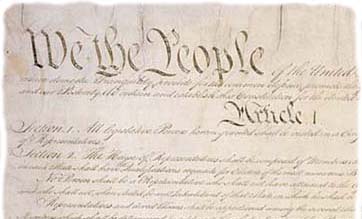 We the People of the United
insure domestic Tranquility, provide for the common defence, promote the
and our Posterity, do ordain and establish this Constitution for the United
Article 1
Section. 1. All legislative Powers herein granted shall be vested in a Cong
of Representatives.
Section. 2. The House of Representatives shall be composed of Members
in each State shall have Qualifications requisite for Electors of the most numerous
No Person shall be a Representative who shall not have attained to the
and who shall not, when elected, be an Inhabitant of that State in which he shall
Representatives and direct Taxes shall be apportioned among the several